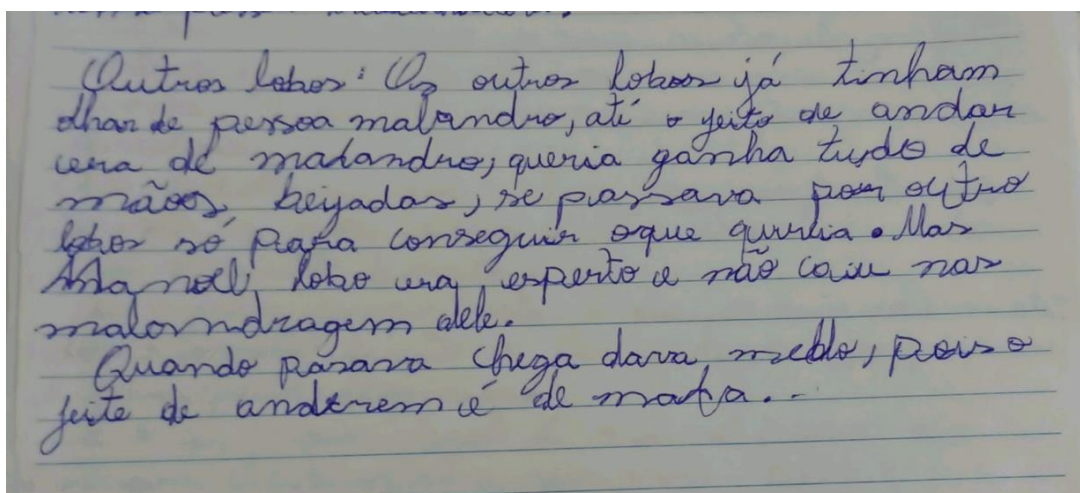 Outros lobos: Os outros lobos já tinham
olhar de pessoa malandro, até o jeito de andar
era de malandro, queria ganha tudo de
mãos beijadas, se passava por outro
lobos só para conseguir oque queria. Mas
Manoel lobo era esperto e não caiu nas
malomdragem dele.
Quando pasava chega dava medo, pois o
jeito de anderem é de mafa...